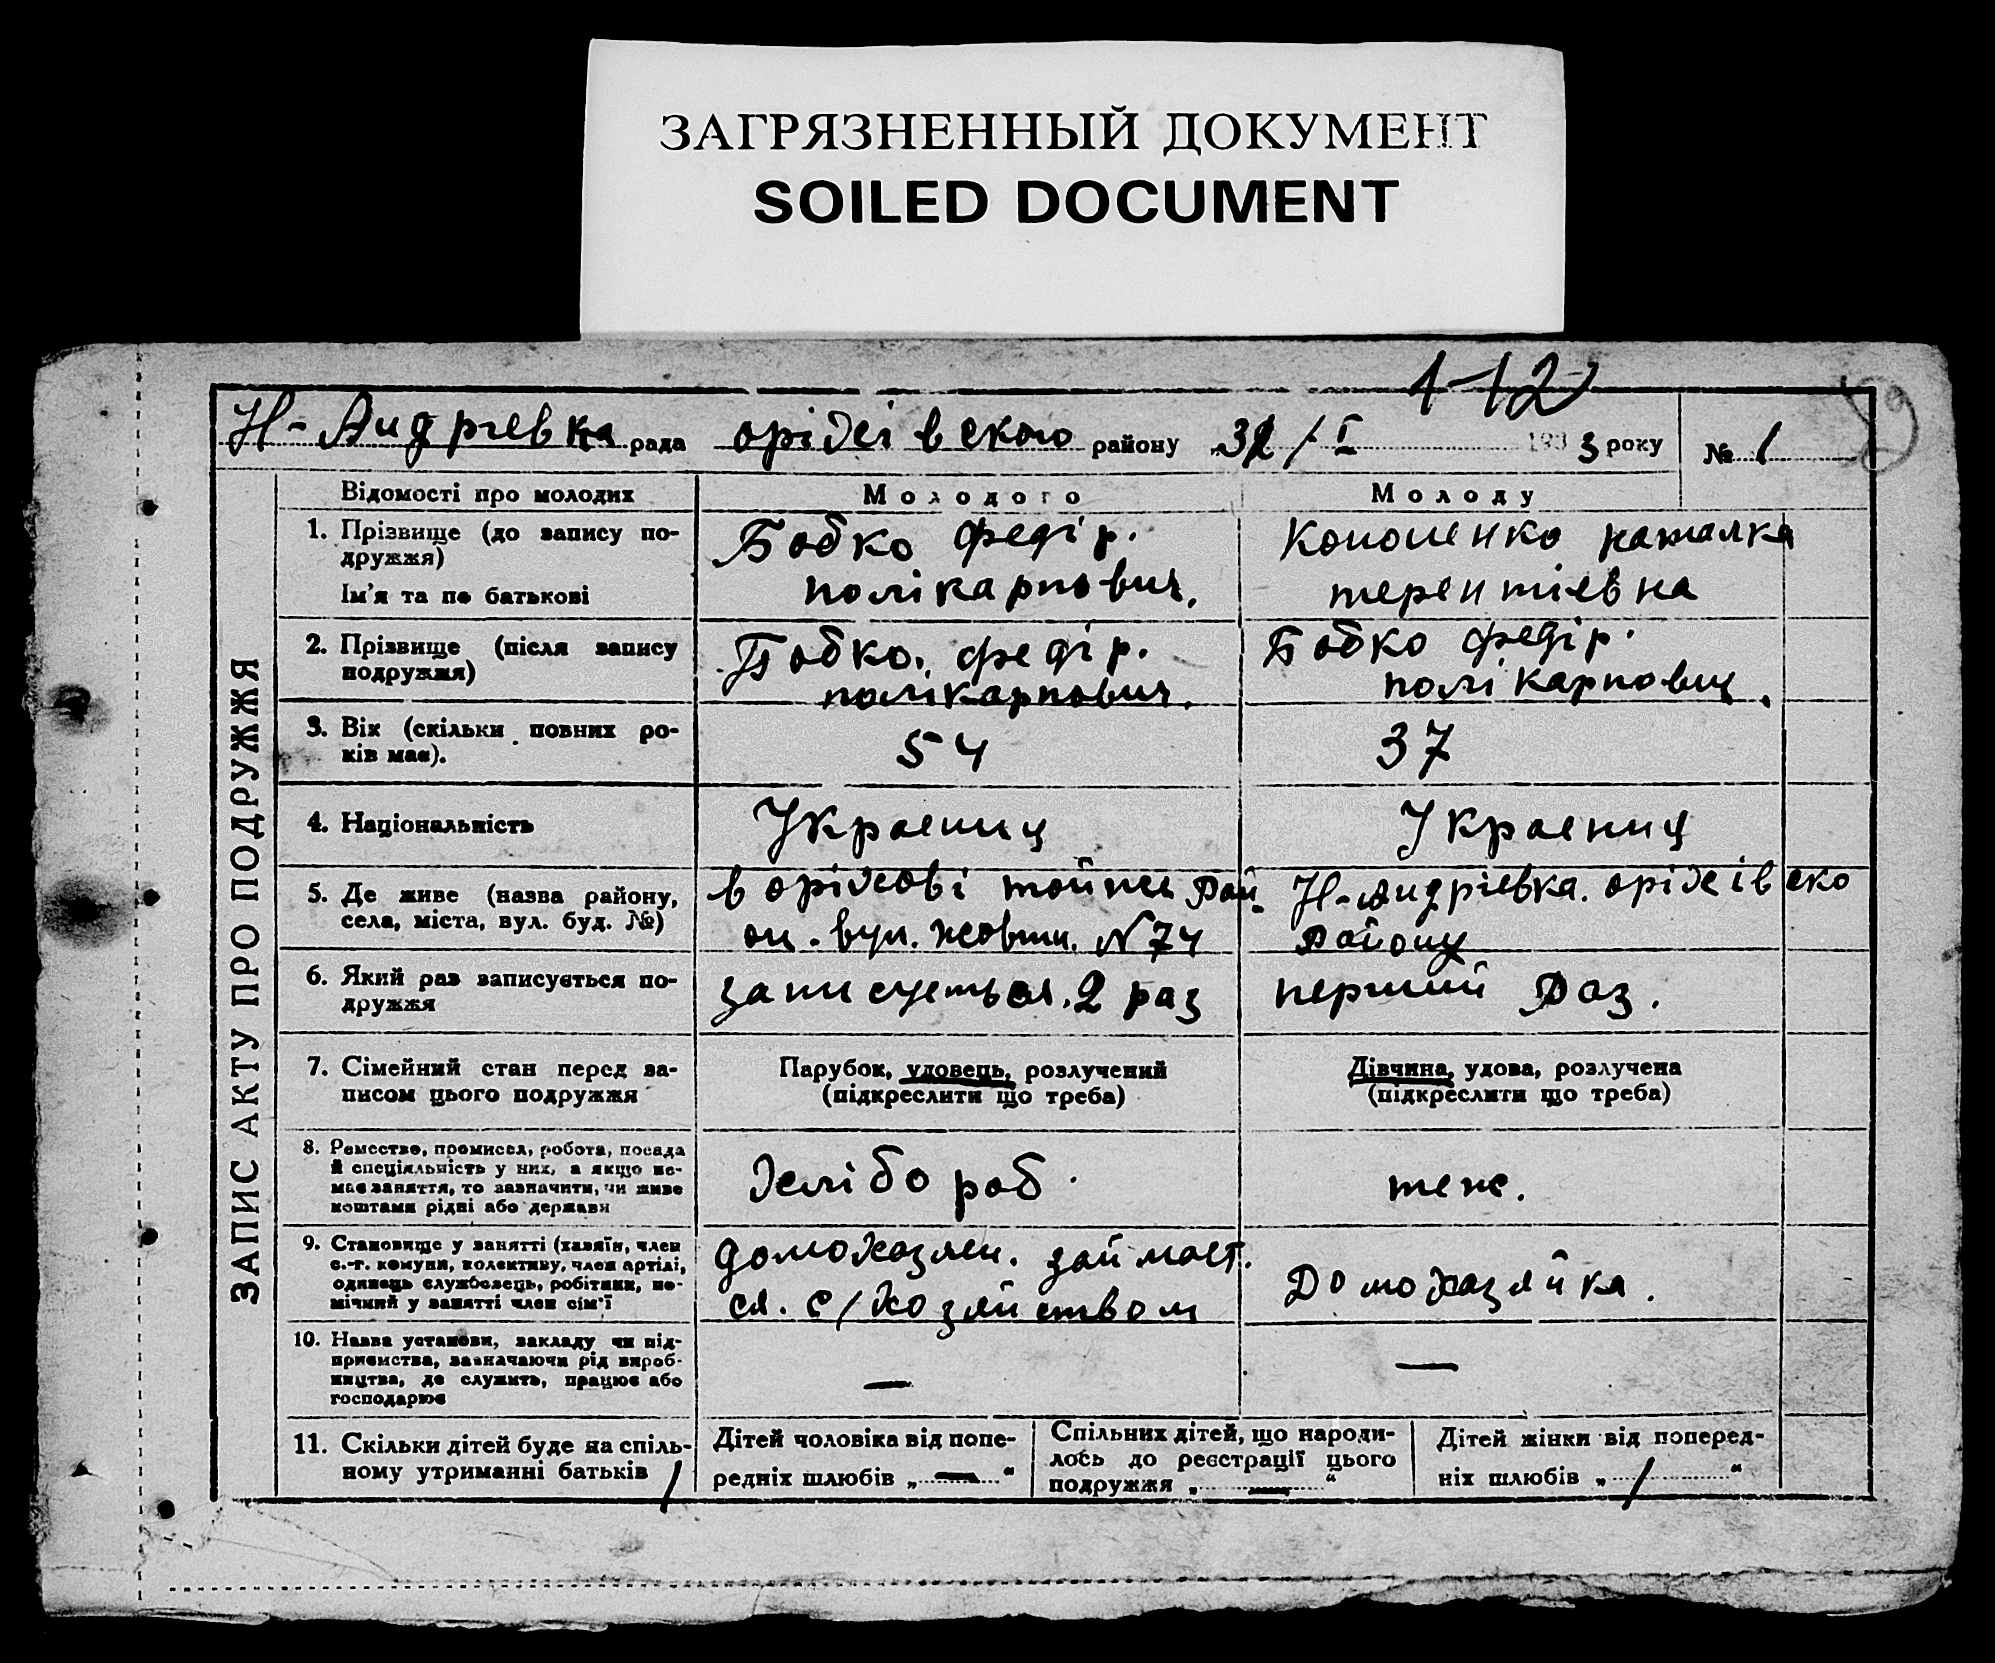 ЗАГРЯЗНЕННЫЙ ДОКУМЕНТ
SOILED DOCUMENT
1-12
Н-Андріевка рада оріхівского району /I 193 3 року № 1
ЗАПИС АКТУ ПРО ПОДРУЖЖЯ
Відомості про молодих Молодого Молоду
1. Прізвище (до запису по-
дружжя)
Ім'я та по батькові
Бобко Федір.
полікарпович.
Кононенко наталка
терентіевна
2. Прізвище (після запису
подружжя)
Бобко. Федір.
полікарпович.
Бобко Федір.
полікарпович.
3. Вік (скільки повних ро-
ків має).
54
37
4. Національність
Украениц
Украениц
5. Де живе (назва району,
села, міста, вул. буд. №)
в оріхові рай
он. вул. жовтн. N 74
Н-Андріевка. оріхівско
району
6. Який раз записується по-
дружжя
записуеться. 2 раз
перший раз.
7. Сімейний стан перед за-
писом цього подружжя
Парубок, удовець, розлучений
(підкреслити що треба)
Дівчина, удова, розлучена
(підкреслити що треба)
8. Ремество, промисел, робота, посада
й спеціяльність у них, а якщо не-
має заняття, то зазначити, чи живе
коштами рідні або держави
хлібороб.
теж.
9. Становище у занятті (хазяїн, член
с.-г. комуни, колективу, член артілі,
одинець службовець, робітник, по-
мічний у занятті член сім'ї
домохазяен. займает.
ся. с/хозяйством
Домохазяйка.
10. Назва установи, закладу чи під-
приємства, зазначаючи рід вироб-
ництва, де служить, працює або
господарює
—
—
11. Скільки дітей буде на спіль-
ному утриманні батьків 1
Дітей чоловіка від попе-
редніх шлюбів „—“
Спільних дітей, що народи-
лось до реєстрації цього
подружжя „—“
Дітей жінки від поперед-
ніх шлюбів „1“